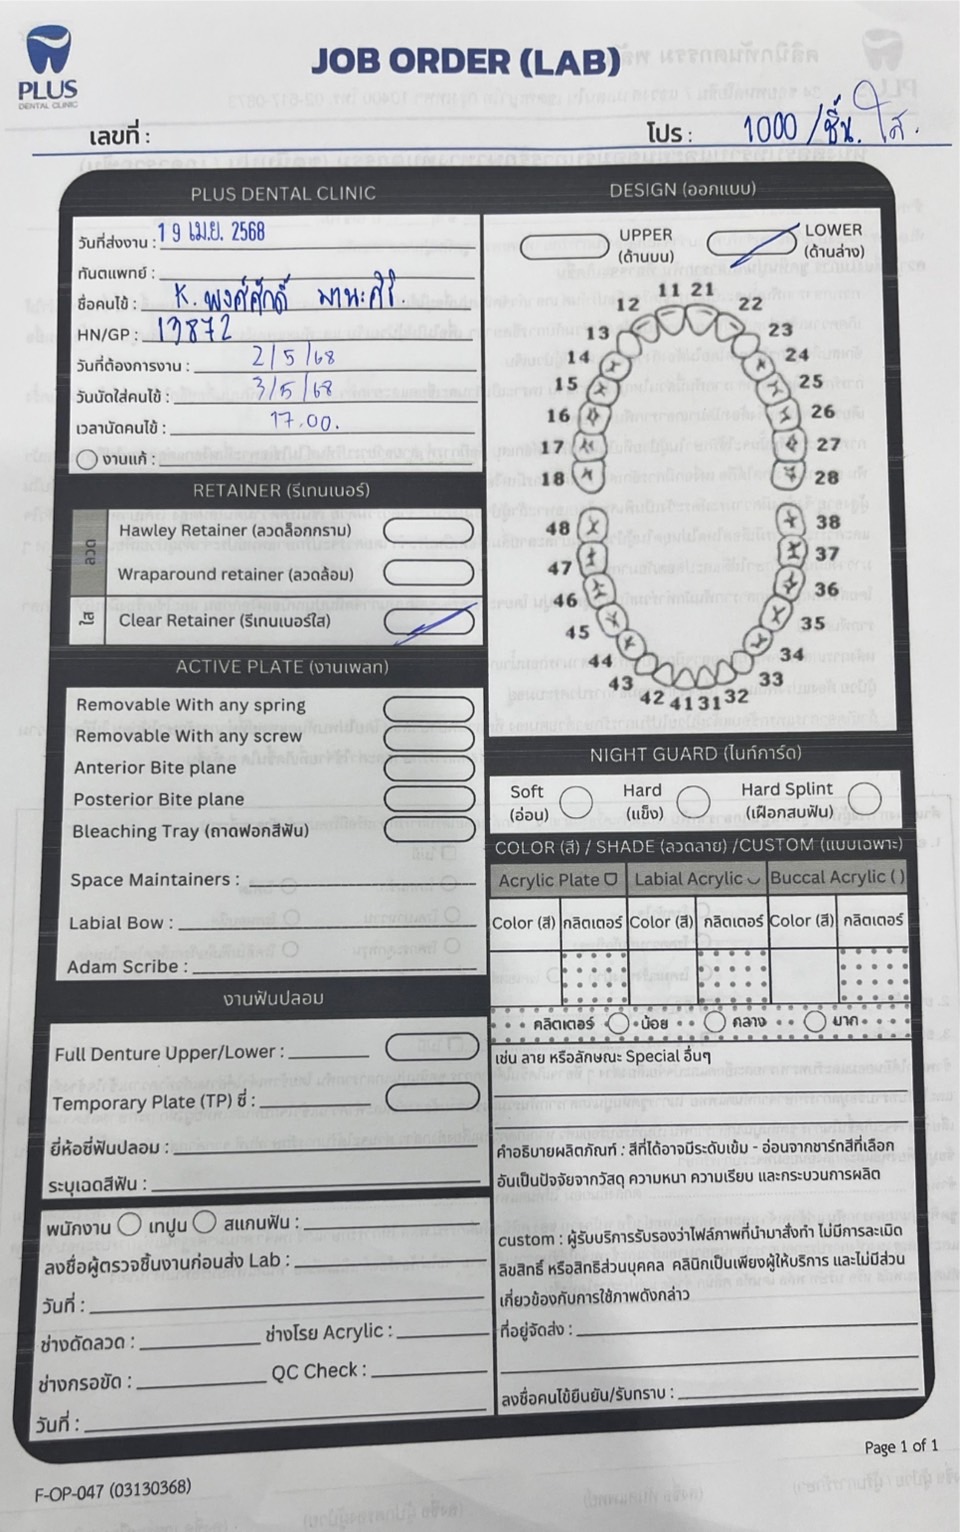 PLUS
DENTAL CLINIC
JOB ORDER (LAB)
เลขที่ :
โปร : 1000 /ชิ้น. ใส.
PLUS DENTAL CLINIC
วันที่ส่งงาน : 19 เม.ย. 2568
ทันตแพทย์ :
ชื่อคนไข้ : K. พงศ์ศักดิ์ มานะศิริ.
HN/GP : 13872
วันที่ต้องการงาน : 2/5/68
วันนัดใส่คนไข้ : 3/5/68
เวลานัดคนไข้ : 17.00.
งานแก้ :
RETAINER (รีเทนเนอร์)
ลวด
Hawley Retainer (ลวดล็อกกราม)
Wraparound retainer (ลวดล้อม)
ใส
Clear Retainer (รีเทนเนอร์ใส)
ACTIVE PLATE (งานเพลท)
Removable With any spring
Removable With any screw
Anterior Bite plane
Posterior Bite plane
Bleaching Tray (ถาดฟอกสีฟัน)
Space Maintainers :
Labial Bow :
Adam Scribe :
งานฟันปลอม
Full Denture Upper/Lower :
Temporary Plate (TP) ซี่ :
ยี่ห้อซี่ฟันปลอม :
ระบุเฉดสีฟัน :
พนักงาน เทปูน สแกนฟัน :
ลงชื่อผู้ตรวจชิ้นงานก่อนส่ง Lab :
วันที่ :
ช่างดัดลวด : ช่างโรย Acrylic :
ช่างกรอขัด : QC Check :
วันที่ :
DESIGN (ออกแบบ)
UPPER
(ด้านบน)
LOWER
(ด้านล่าง)
11 21
12 22
13 23
14 24
15 25
16 26
17 27
18 28
48 38
47 37
46 36
45 35
44 34
43 33
42 41 31 32
NIGHT GUARD (ไนท์การ์ด)
Soft
(อ่อน)
Hard
(แข็ง)
Hard Splint
(เฝือกสบฟัน)
COLOR (สี) / SHADE (ลวดลาย) /CUSTOM (แบบเฉพาะ)
Acrylic Plate Labial Acrylic Buccal Acrylic ( )
Color (สี) กลิตเตอร์ Color (สี) กลิตเตอร์ Color (สี) กลิตเตอร์
กลิตเตอร์ น้อย กลาง มาก
เช่น ลาย หรือลักษณะ Special อื่นๆ
คำอธิบายผลิตภัณฑ์ : สีที่ได้อาจมีระดับเข้ม - อ่อนจากชาร์ทสีที่เลือก
อันเป็นปัจจัยจากวัสดุ ความหนา ความเรียบ และกระบวนการผลิต
custom : ผู้รับบริการรับรองว่าไฟล์ภาพที่นำมาสั่งทำ ไม่มีการละเมิด
ลิขสิทธิ์ หรือสิทธิส่วนบุคคล คลินิกเป็นเพียงผู้ให้บริการ และไม่มีส่วน
เกี่ยวข้องกับการใช้ภาพดังกล่าว
ที่อยู่จัดส่ง :
ลงชื่อคนไข้ยืนยัน/รับทราบ :
Page 1 of 1
F-OP-047 (03130368)